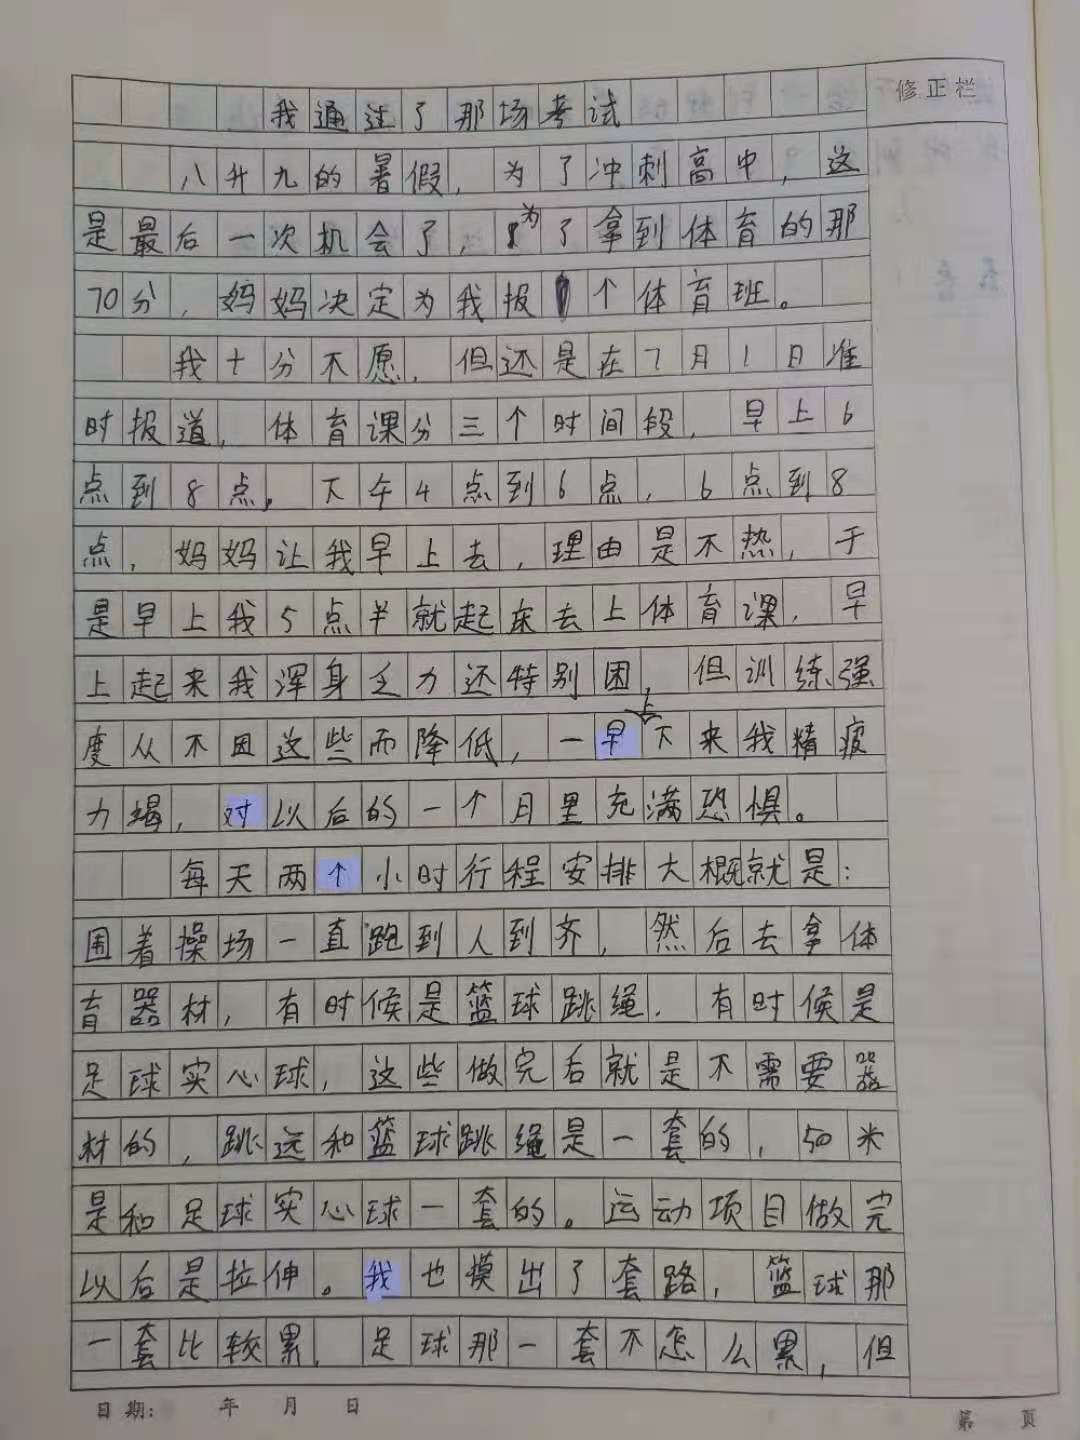 修正栏
我通过了那场考试
八升九的暑假，为了冲刺高中，这
是最后一次机会了，为了拿到体育的那
70分，妈妈决定为我报个体育班。
我十分不愿，但还是在7月1日准
时报道，体育课分三个时间段，早上6
点到8点，下午4点到6点，6点到8
点，妈妈让我早上去，理由是不热，于
是早上我5点半就起床去上体育课，早
上起来我浑身乏力还特别困，但训练强
度从不因这些而降低，一早上下来我精疲
力竭，对以后的一个月里充满恐惧。
每天两个小时行程安排大概就是：
围着操场一直跑到人到齐，然后去拿体
育器材，有时候是篮球跳绳，有时候是
足球实心球，这些做完后就是不需要器
材的，跳远和篮球跳绳是一套的，50米
是和足球实心球一套的。运动项目做完
以后是拉伸。我也摸出了套路，篮球那
一套比较累，足球那一套不怎么累，但
日期： 年 月 日
第 页